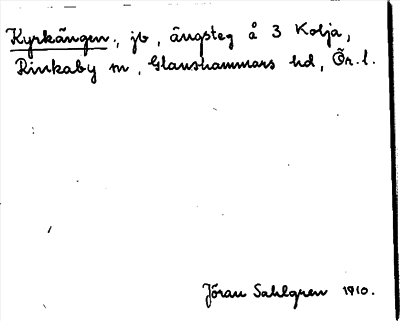 Kyrkängen., jb, ängsteg å 3 Kolja,
Rinkaby sn, Glanshammars hd, Ör. l.
Jöran Sahlgren 1910.